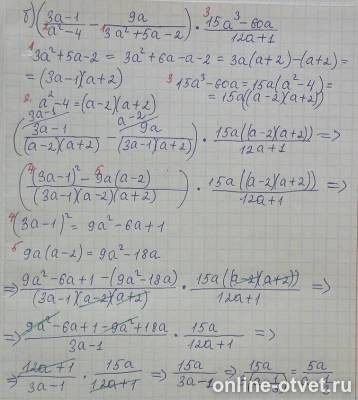 б) ( (3a-1)/(a²-4) - 9a/(3a²+5a-2) ) · (15a³-60a)/(12a+1)
¹ 3a²+5a-2 = 3a²+6a-a-2 = 3a(a+2)-(a+2) =
= (3a-1)(a+2)
³ 15a³-60a = 15a(a²-4) =
= 15a((a-2)(a+2))
2. a²-4 = (a-2)(a+2)
3a-1 a-2
( (3a-1)/((a-2)(a+2)) - 9a/((3a-1)(a+2)) ) · 15a((a-2)(a+2))/(12a+1) =>
( (⁴(3a-1)² - ⁵9a(a-2))/((3a-1)(a-2)(a+2)) ) · 15a((a-2)(a+2))/(12a+1) =>
⁴ (3a-1)² = 9a²-6a+1
⁵ 9a(a-2) = 9a²-18a
=> (9a²-6a+1-(9a²-18a))/((3a-1)(a-2)(a+2)) · 15a((a-2)(a+2))/(12a+1) =>
=> (9a²-6a+1-9a²+18a)/(3a-1) · 15a/(12a+1) =>
=> (12a+1)/(3a-1) · 15a/(12a+1) => 15a/(3a-1) => 15a = 5a
online-otvet.ru